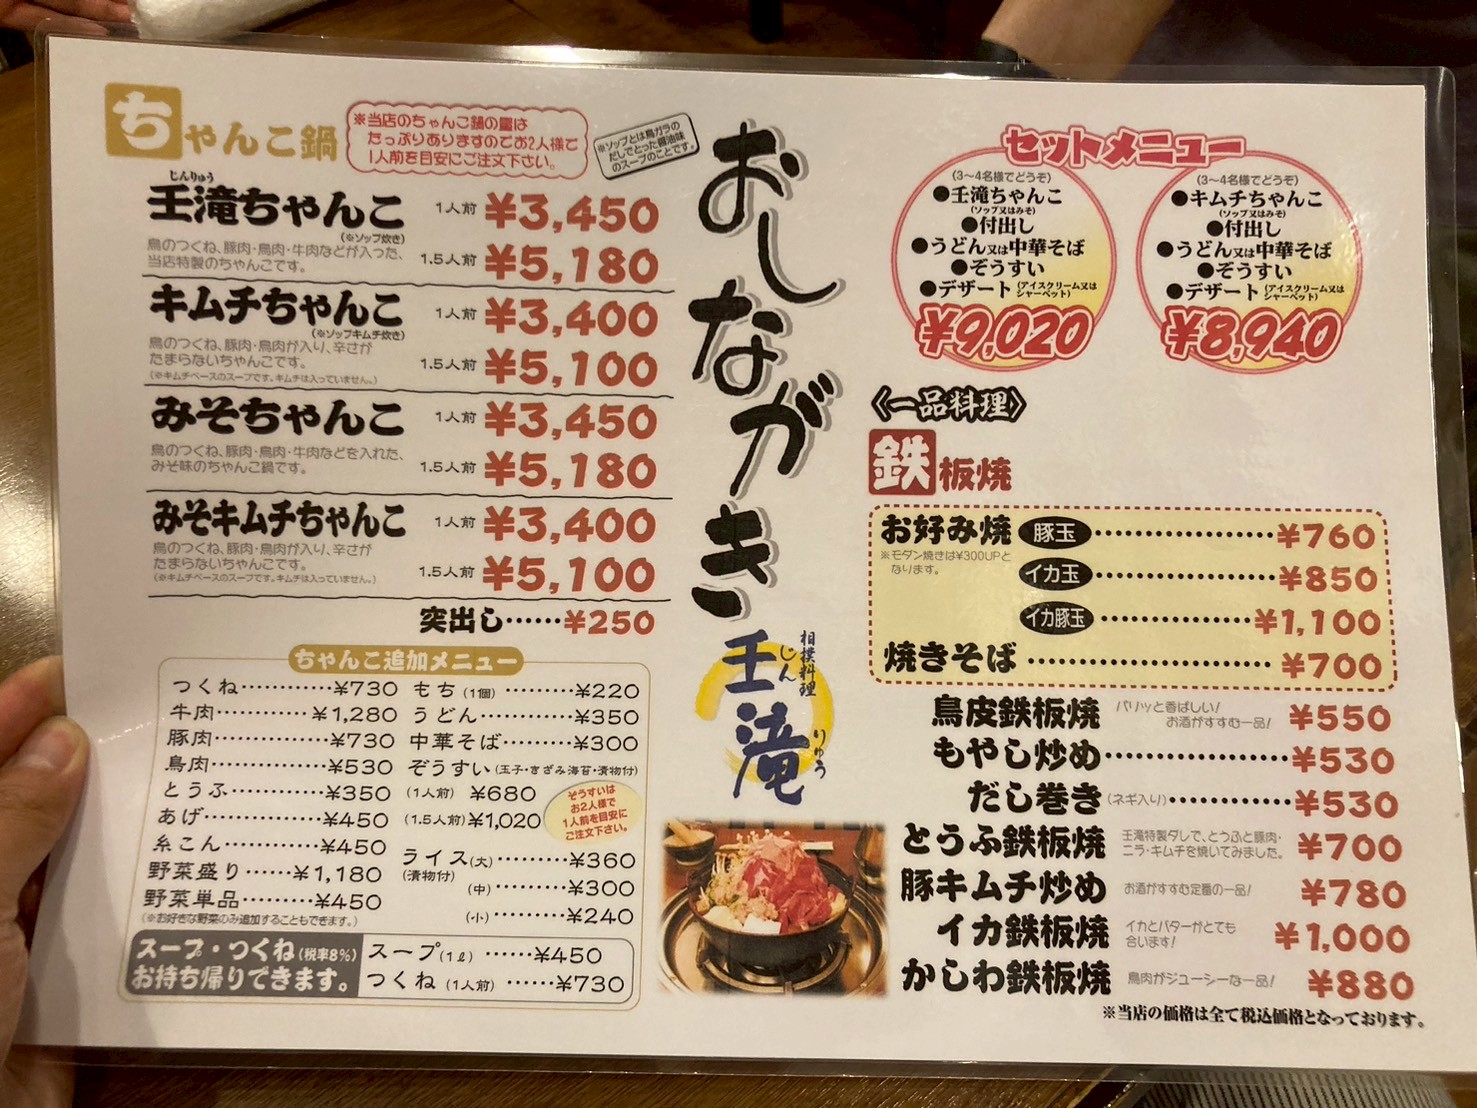 ちゃんこ鍋
※当店のちゃんこ鍋の量は
たっぷりありますのでお2人様で
1人前を目安にご注文下さい。
※ソップとは鳥ガラの
だしでとった醤油味
のスープのことです。
じんりゅう
壬滝ちゃんこ 1人前 ¥3,450
(※ソップ炊き)
鳥のつくね、豚肉・鳥肉・牛肉などが入った、
当店特製のちゃんこです。
1.5人前 ¥5,180
キムチちゃんこ 1人前 ¥3,400
(※ソップキムチ炊き)
鳥のつくね、豚肉・鳥肉が入り、辛さが
たまらないちゃんこです。
(※キムチベースのスープです。キムチは入っていません。)
1.5人前 ¥5,100
みそちゃんこ 1人前 ¥3,450
鳥のつくね、豚肉・鳥肉・牛肉などを入れた、
みそ味のちゃんこ鍋です。
1.5人前 ¥5,180
みそキムチちゃんこ 1人前 ¥3,400
鳥のつくね、豚肉・鳥肉が入り、辛さが
たまらないちゃんこです。
(※キムチベースのスープです。キムチは入っていません。)
1.5人前 ¥5,100
突出し……¥250
ちゃんこ追加メニュー
つくね…………¥730
牛肉…………¥1,280
豚肉……………¥730
鳥肉……………¥530
とうふ…………¥350
あげ……………¥450
糸こん…………¥450
野菜盛り……¥1,180
野菜単品………¥450
(※お好きな野菜のみ追加することもできます。)
もち(1個)………¥220
うどん…………¥350
中華そば………¥300
ぞうすい(玉子・きざみ海苔・漬物付)
(1人前) ¥680
(1.5人前)¥1,020
ぞうすいは
お2人様で
1人前を目安に
ご注文下さい。
ライス(大)………¥360
(漬物付)
(中)………¥300
(小)………¥240
スープ・つくね(税率8%)
お持ち帰りできます。
スープ(1ℓ)……¥450
つくね(1人前)……¥730
おしながき
相撲料理
壬滝
じんりゅう
セットメニュー
(3〜4名様でどうぞ)
●壬滝ちゃんこ
(ソップ又はみそ)
●付出し
●うどん又は中華そば
●ぞうすい
●デザート(アイスクリーム又はシャーベット)
¥9,020
(3〜4名様でどうぞ)
●キムチちゃんこ
(ソップ又はみそ)
●付出し
●うどん又は中華そば
●ぞうすい
●デザート(アイスクリーム又はシャーベット)
¥8,940
〈一品料理〉
鉄板焼
お好み焼 豚玉……………………¥760
※モダン焼きは¥300UPと
なります。
イカ玉……………………¥850
イカ豚玉…………………¥1,100
焼きそば…………………………¥700
鳥皮鉄板焼 パリッと香ばしい!
お酒がすすむ一品! ¥550
もやし炒め……………………¥530
だし巻き(ネギ入り)……………¥530
とうふ鉄板焼 壬滝特製ダレで、とうふと豚肉・
ニラ・キムチを焼いてみました。 ¥700
豚キムチ炒め お酒がすすむ定番の一品! ¥780
イカ鉄板焼 イカとバターがとても
合います! ¥1,000
かしわ鉄板焼 鳥肉がジューシーな一品! ¥880
※当店の価格は全て税込価格となっております。